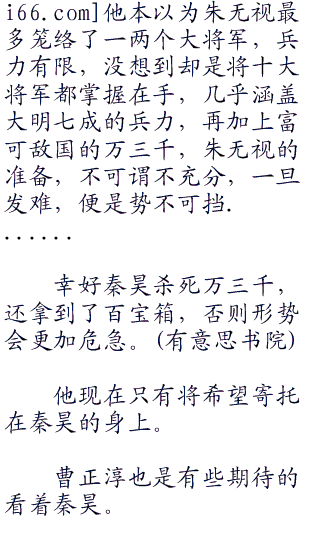 i66.com]他本以为朱无视最
多笼络了一两个大将军，兵
力有限，没想到却是将十大
将军都掌握在手，几乎涵盖
大明七成的兵力，再加上富
可敌国的万三千，朱无视的
准备，不可谓不充分，一旦
发难，便是势不可挡.
......
幸好秦昊杀死万三千，
还拿到了百宝箱，否则形势
会更加危急。(有意思书院)
他现在只有将希望寄托
在秦昊的身上。
曹正淳也是有些期待的
看着秦昊。